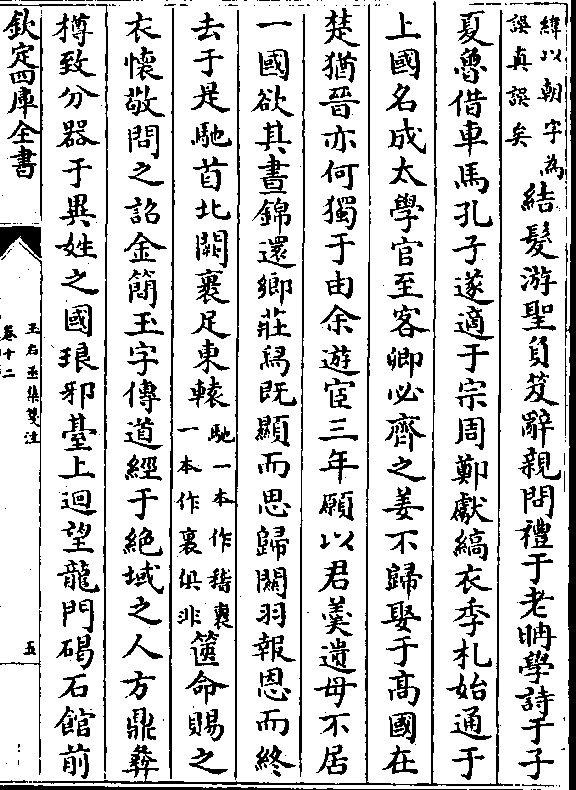 緯以朝字為
誤真誤矣
結髮游聖負笈辭親問禮于老聃學詩于子
夏魯借車馬孔子遂適于宗周鄭獻縞衣季札始通于
上國名成太學官至客卿必齊之姜不歸娶于高國在
楚猶晉亦何獨于由余遊宦三年願以君羹遺母不居
一國欲其晝錦還鄉莊舄既顯而思歸關羽報恩而終
去于是馳首北闕裹足東轅
馳一本作稽裹
一本作裏俱非
篋命賜之
衣懷敬問之詔金簡玉字傳道經于絶域之人方鼎彝
樽致分器于異姓之國琅邪臺上迴望龍門碣石館前
欽定四庫全書
王右丞集箋注
卷十二
五